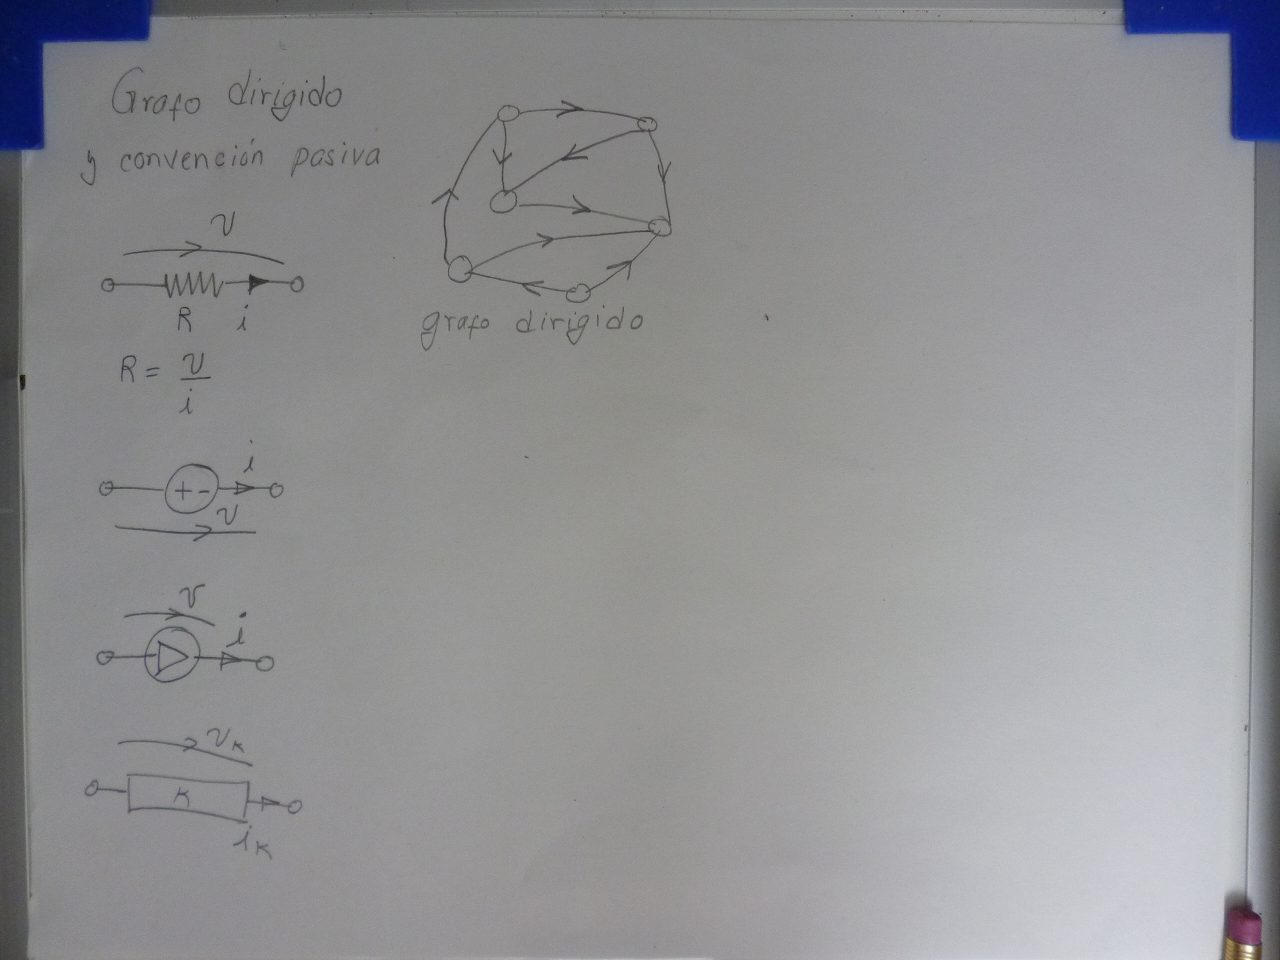 Grafo dirigido
y convención pasiva
v
R i
R = v
i
i
+ -
v
v
i
vₖ
k
iₖ
grafo dirigido